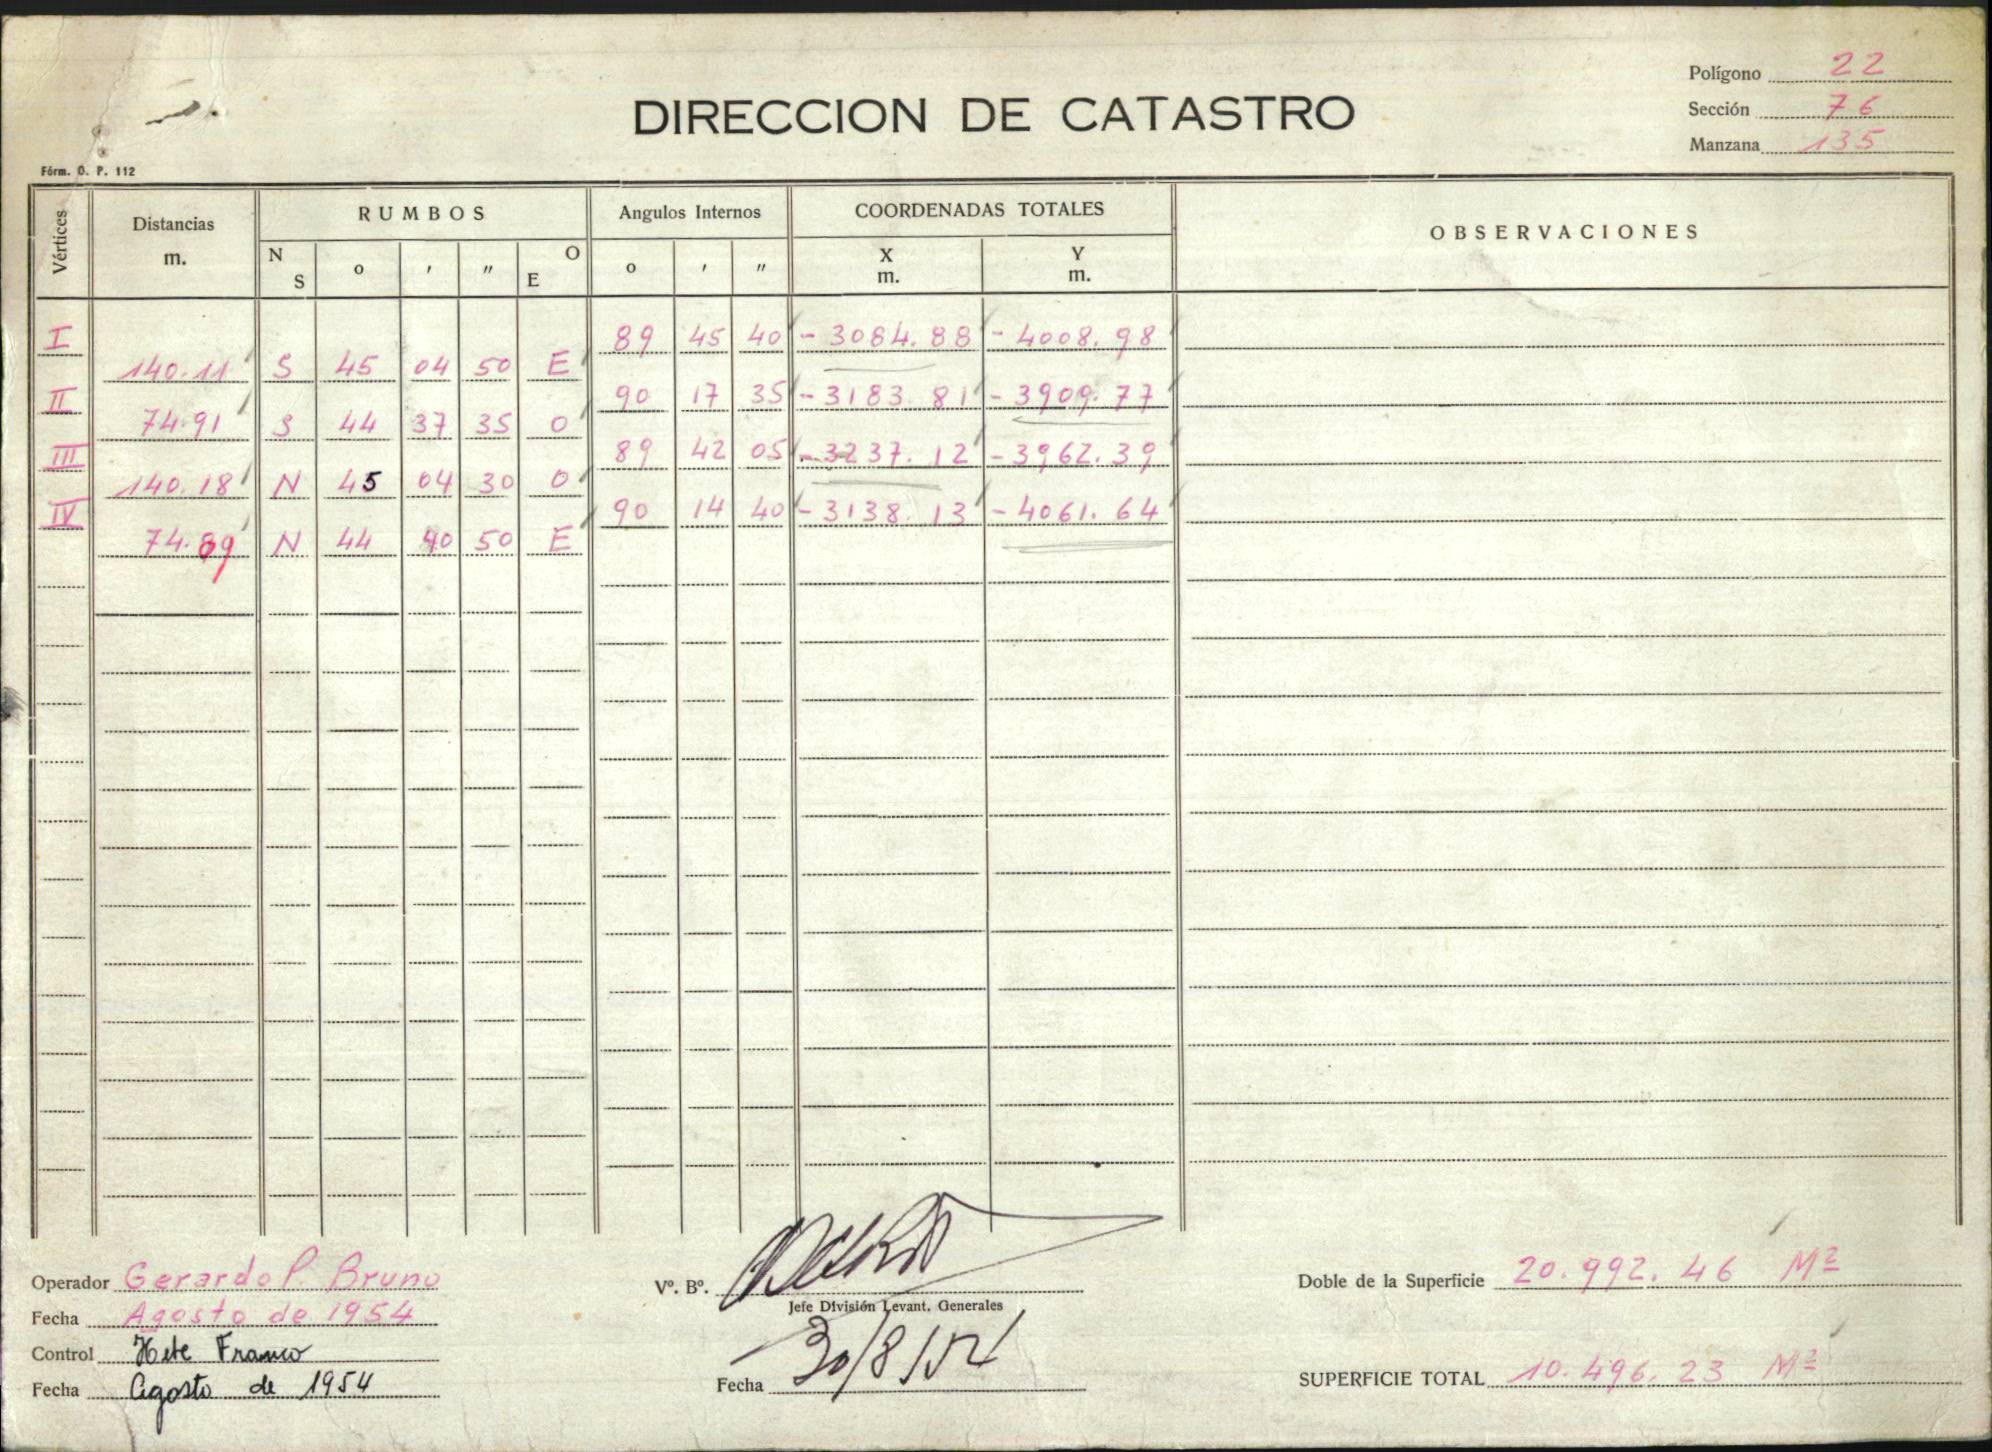 Polígono 22
DIRECCION DE CATASTRO
Sección 76
Manzana 135
Fórm. O. P. 112
Vértices Distancias m. RUMBOS N S ° ' " O E Angulos Internos ° ' " COORDENADAS TOTALES X m. Y m. OBSERVACIONES
I 89 45 40 - 3084.88 - 4008.98
140.11 S 45 04 50 E
II 90 17 35 - 3183.81 - 3909.77
74.91 S 44 37 35 O
III 89 42 05 - 3237.12 - 3962.39
140.18 N 45 04 30 O
IV 90 14 40 - 3138.13 - 4061.64
74.89 N 44 40 50 E
Operador Gerardo P. Bruno
Fecha Agosto de 1954
Control Franco
Fecha Agosto de 1954
Vº. Bº.
Jefe División Levant. Generales
Fecha 30/8/54
Doble de la Superficie 20.992.46 M²
SUPERFICIE TOTAL 10.496.23 M²